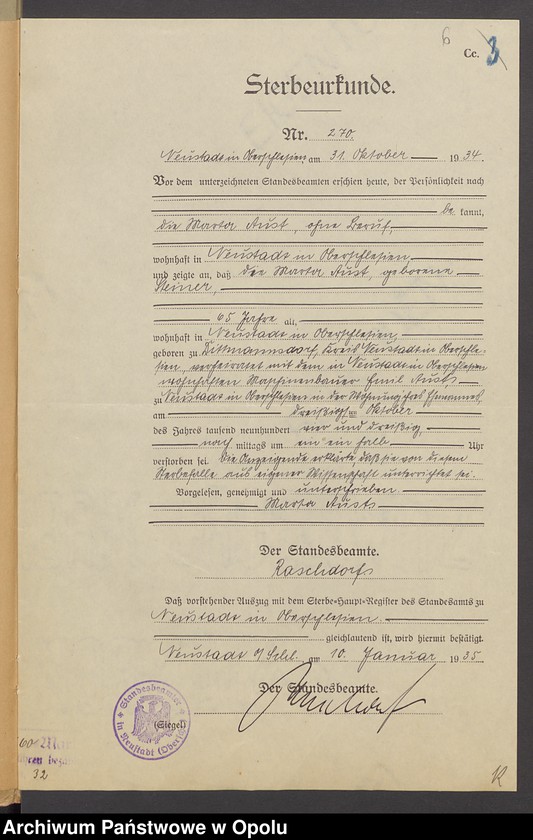 6
Cc. 3
Sterbeurkunde.
Nr. 270.
Neustadt in Oberschlesien, am 31. Oktober 1934.
Vor dem unterzeichneten Standesbeamten erschien heute, der Persönlichkeit nach
be kannt,
die Marta Aust, ohne Beruf,
wohnhaft in Neustadt in Oberschlesien,
und zeigte an, daß die Marta Aust, geborene
Steiner,
65 Jahre alt,
wohnhaft in Neustadt in Oberschlesien,
geboren zu Dittmannsdorf, Kreis Neustadt in Oberschle-
sien, verheiratet mit dem in Neustadt in Oberschlesien
wohnhaften Maschinenbauer Emil Aust
zu Neustadt in Oberschlesien in der Wohnung ihres Ehemannes,
am dreißigsten Oktober
des Jahres tausend neunhundert vier und dreißig,
nach mittags um ein ein halb Uhr
verstorben sei. Die Anzeigende erklärte, daß sie von diesem
Sterbefalle aus eigener Wissenschaft unterrichtet sei.
Vorgelesen, genehmigt und unterschrieben
Marta Aust
Der Standesbeamte.
Raschdorf
Daß vorstehender Auszug mit dem Sterbe-Haupt-Register des Standesamts zu
Neustadt in Oberschlesien
gleichlautend ist, wird hiermit bestätigt.
Neustadt O/Schl. am 10. Januar 1935.
Der Standesbeamte.
Raschdorf
(Siegel)
Standesbeamter
in Neustadt (Obersch
32
Archiwum Państwowe w Opolu